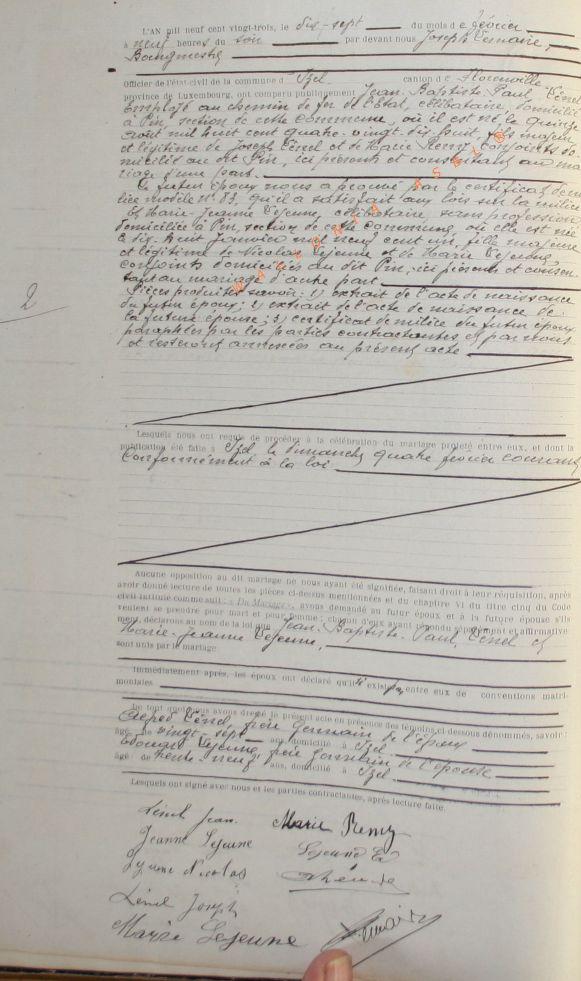 L'AN mil neuf cent vingt-trois, le dix-sept du mois de février
à neuf heures du soir par devant nous Joseph Lemaire,
Bourgmestre
Officier de l'état-civil de la commune d'Izel canton de Florenville
province de Luxembourg, ont comparu publiquement Jean-Baptiste Paul Lénel
Employé au chemin de fer de l'Etat, célibataire, domicilié
à Pin, section de cette commune, où il est né le quinze
août mil huit cent quatre-vingt-dix huit, fils majeur
et légitime de Joseph Lénel et de Marie Remy conjoints do-
miciliés au dit Pin, ici présents et consentants au ma-
riage d'une part.
Le futur époux nous a prouvé par le certificat de mi-
lice modèle N° 83, qu'il a satisfait aux lois sur la milice
Et Marie-Jeanne Lejeune, célibataire, sans profession
domiciliée à Pin, section de cette commune, où elle est née
le dix-huit janvier mil neuf cent un, fille majeure
et légitime de Nicolas Lejeune et de Marie Lejeune,
conjoints domiciliés au dit Pin, ici présents et consen-
tant au mariage d'autre part
Pièces produites savoir: 1) extrait de l'acte de naissance
du futur époux; 2) extrait de l'acte de naissance de
la future épouse; 3) certificat de milice du futur époux
paraphées par les parties contractantes et par nous
et resteront annexées au présent acte
2
Lesquels nous ont requis de procéder à la célébration du mariage projeté entre eux, et dont la
publication été faite à Izel le Dimanche quatre février courant
Conformément à la loi
Aucune opposition au dit mariage ne nous ayant été signifiée, faisant droit à leur réquisition, après
avoir donné lecture de toutes les pièces ci-dessus mentionnées et du chapitre VI du titre cinq du Code
civil intitulé comme suit: « Du Mariage », avons demandé au futur époux et à la future épouse s'ils
veulent se prendre pour mari et pour femme; chacun d'eux ayant répondu séparément et affirmative
ment, déclarons au nom de la loi que Jean-Baptiste-Paul, Lénel et
Marie-Jeanne Lejeune,
sont unis par le mariage
Immédiatement après, les époux ont déclaré qu'il existe pas entre eux de conventions matri-
moniales
De tout quoi nous avons dressé le présent acte en présence des témoins ci-dessous dénommés, savoir:
Alfred Lénel, frère Germain de l'époux
âgé de vingt-sept ans, domicilié à Izel
Edouard Lejeune, frère Germain de l'épouse
âgé de trente-neuf ans, domicilié à Izel
Lesquels ont signé avec nous et les parties contractantes, après lecture faite.
Lénel Jean. Marie Remy
Jeanne Lejeune Lejeune Ed
Lejeune Nicolas
Lénel Joseph
Marie Lejeune